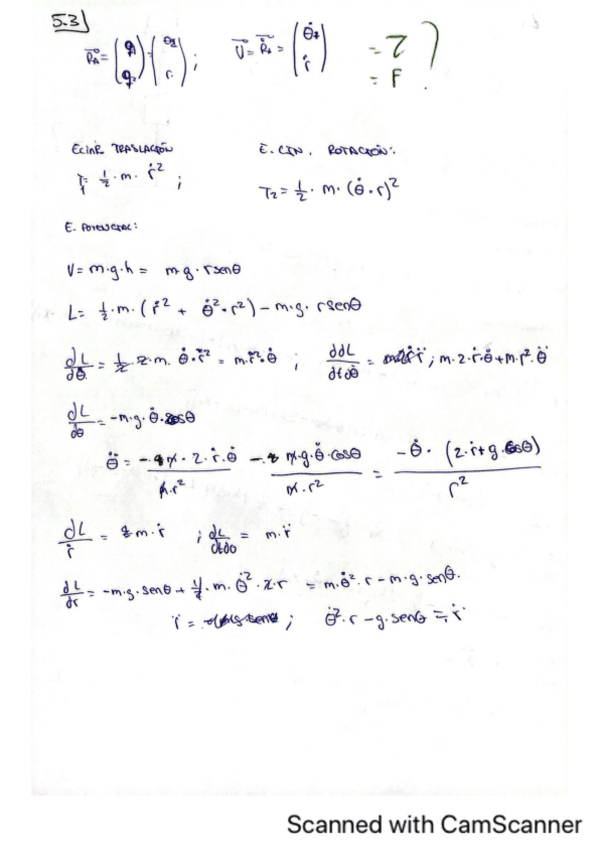 5.3)
R_A = (q_1 q_2) = (θ_1 r); V = Ṙ_A = (θ̇_1 ṙ) = τ = F ) ?
E CINE TRASLACIÓN E. CIN. ROTACIÓN:
T_1 = 1/2 · m · ṙ²; T_2 = 1/2 · m · (θ̇ · r)²
E. POTENCIAL:
V = m·g·h = m g · r senθ
L = 1/2 · m · (ṙ² + θ̇² · r²) - m·g · r senθ
dL/dθ̇ = 1/2 · 2 · m · θ̇ · r² = m · r² · θ̇ ; ddL/dtdθ̇ = ; m · 2 · r · θ̇ + m · r² · θ̈
dL/dθ = -m·g·θ̇·cosθ
θ̈ = - m · 2 · ṙ · θ̇ / m · r² - m·g·θ̇·cosθ / m · r² = -θ̇ · (2·ṙ + g·cosθ) / r²
dL/ṙ = m · ṙ ; dL/dtdθ = m · r̈
dL/dr = -m·g·senθ + 1/2 · m · θ̇² · 2 · r = m·θ̇²·r - m·g·senθ.
r̈ = ; θ̇²·r - g·senθ = r̈
Scanned with CamScanner